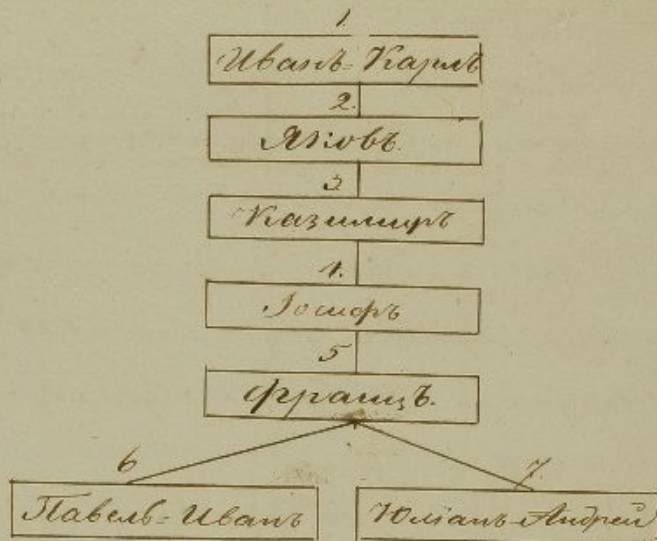 1.
Иванъ-Карлъ
2.
Яковъ.
3.
Казимиръ
4.
Іосифъ
5
Францъ.
6 7.
Павелъ-Иванъ Юліанъ-Андрей